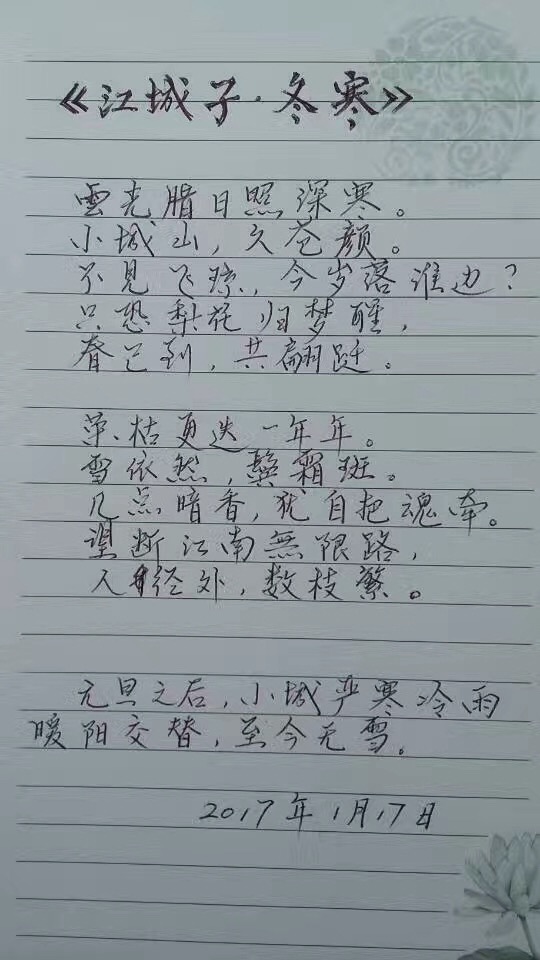 《江城子·冬寒》
雲老腊日照深寒。
小城山,久苍颜。
不见飞琼,今岁落谁边?
只恐梨花归梦醒,
春已到,共翩跹。
荣枯更迭一年年。
雪依然,鬓霜斑。
几点暗香,犹自把魂牵。
望断江南無限路,
人经外,数枝繁。
元旦之后,小城严寒冷雨
暖阳交替,至今无雪。
2017年1月17日